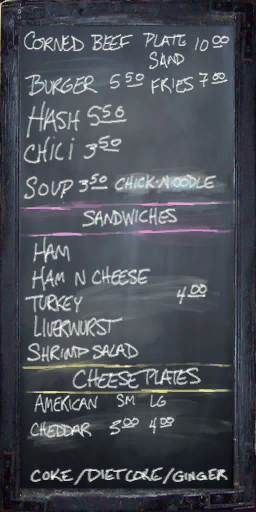 CORNED BEEF PLATE 10 00
SAND
BURGER 5 50 FRIES 7 00
HASH 5 50
CHILI 3 50
SOUP 3 50 CHICK-NOODLE
SANDWICHES
HAM
HAM N CHEESE
TURKEY 4 00
LIVERWURST
SHRIMP SALAD
CHEESE PLATES
AMERICAN SM LG
CHEDDAR 3 00 4 00
COKE/DIET COKE/GINGER